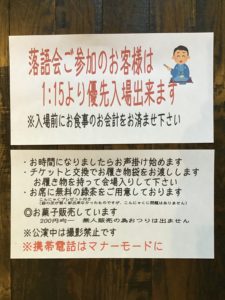 落語会ご参加のお客様は
1:15より優先入場出来ます
※入場前にお食事のお会計をお済ませ下さい
・お時間になりましたらお声掛け始めます
・チケットと交換でお履き物袋をお渡しします
お履き物を持って会場入りして下さい
・お席に無料の緑茶をご用意しております
こんにゃくプレゼント付き
◎お菓子販売しています
200円均一 無人販売の為おつりは出ません
※公演中は撮影禁止です
※携帯電話はマナーモードに